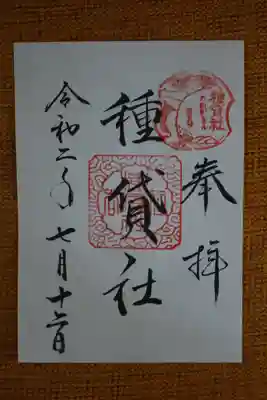 奉拝
種貸社
令和二年七月十六日